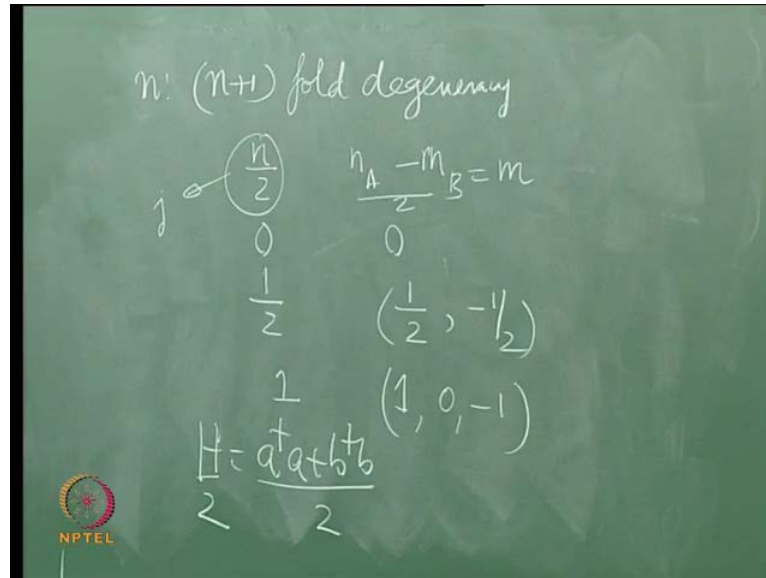 n: (n+1) fold degeneracy
j n/2 (n_A - m_B)/2 = m
0 0
1/2 (1/2, -1/2)
1 (1, 0, -1)
H/2 = (a†a + b†b)/2
NPTEL